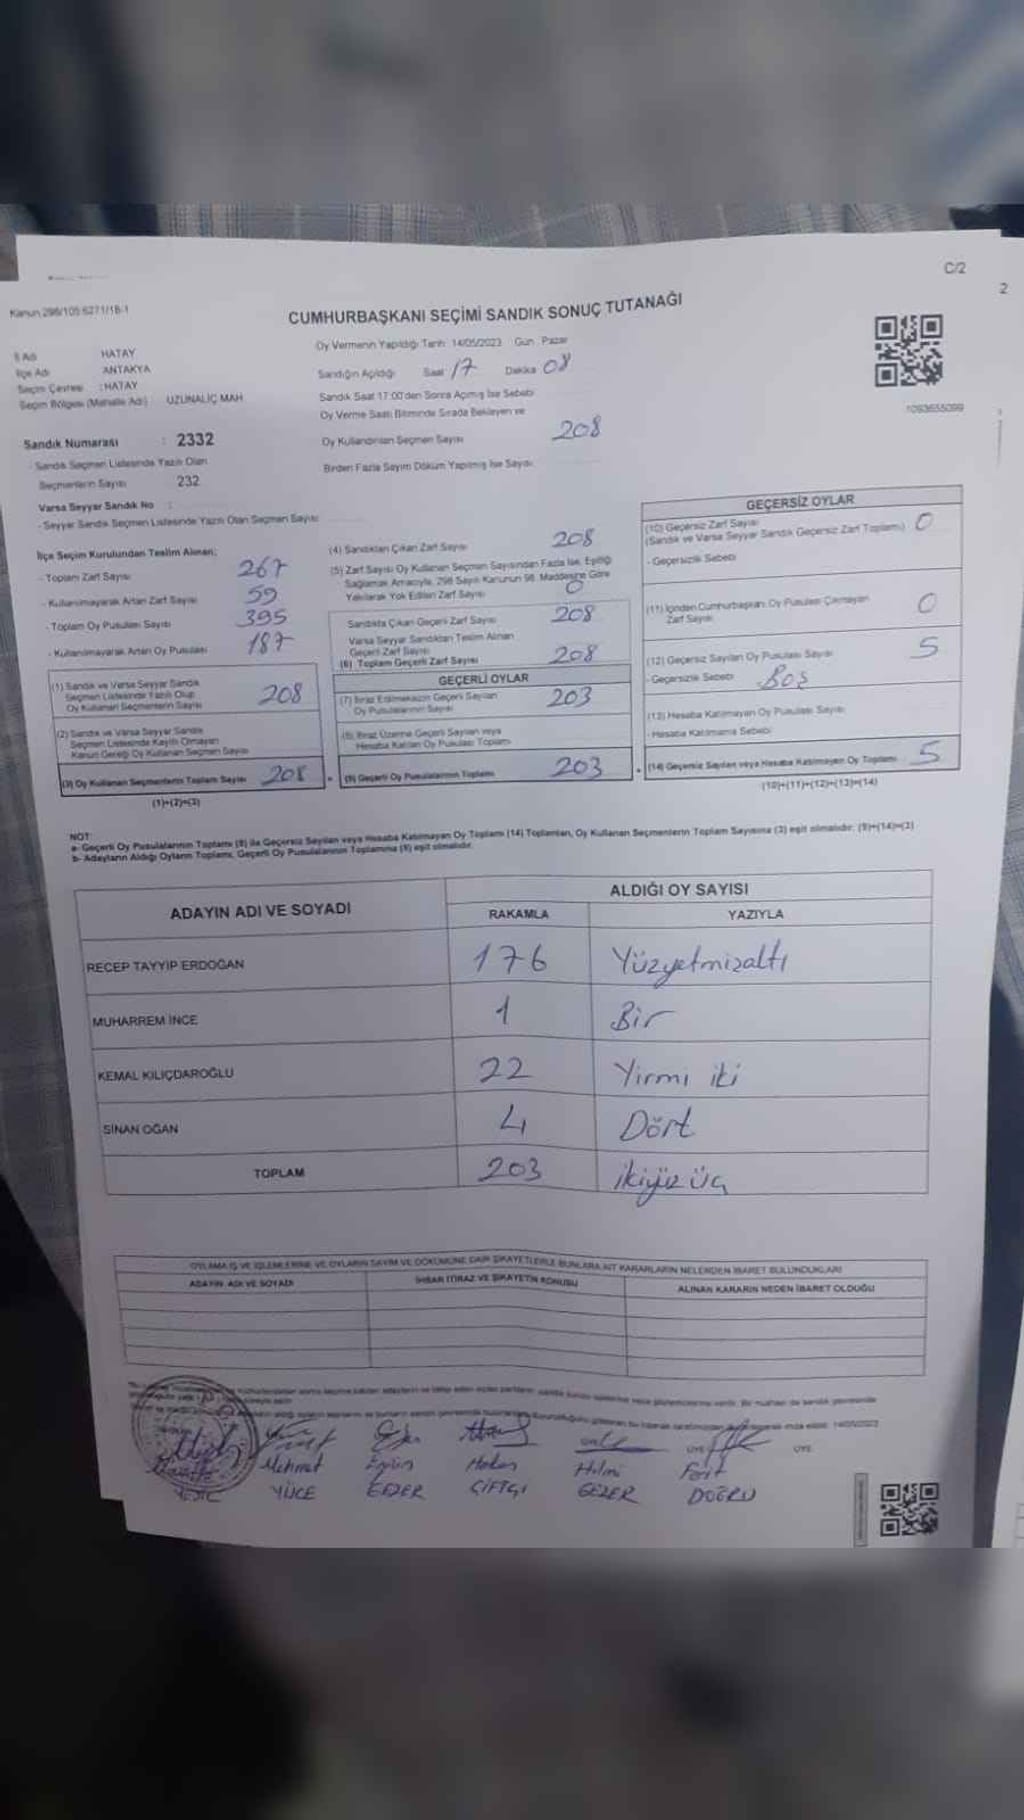 C/2
2
Kanun 298/105 6271/18-1
CUMHURBAŞKANI SEÇİMİ SANDIK SONUÇ TUTANAĞI
İl Adı HATAY
İlçe Adı ANTAKYA
Seçim Çevresi : HATAY
Seçim Bölgesi (Mahalle Adı) UZUNALİÇ MAH
Sandık Numarası : 2332
- Sandık Seçmen Listesinde Yazılı Olan
Seçmenlerin Sayısı 232
Varsa Seyyar Sandık No :
- Seyyar Sandık Seçmen Listesinde Yazılı Olan Seçmen Sayısı
Oy Vermenin Yapıldığı Tarih 14/05/2023 Gün Pazar
Sandığın Açıldığı Saat 17 Dakika 08
Sandık Saat 17:00'den Sonra Açılmış İse Sebebi
Oy Verme Saati Bitiminde Sırada Bekleyen ve
Oy Kullandırılan Seçmen Sayısı 208
Birden Fazla Sayım Döküm Yapılmış İse Sayısı
1093655099
İlçe Seçim Kurulundan Teslim Alınan;
- Toplam Zarf Sayısı 267
- Kullanılmayarak Artan Zarf Sayısı 59
- Toplam Oy Pusulası Sayısı 395
- Kullanılmayarak Artan Oy Pusulası 187
(1) Sandık ve Varsa Seyyar Sandık
Seçmen Listesinde Yazılı Olup
Oy Kullanan Seçmenlerin Sayısı 208
(2) Sandık ve Varsa Seyyar Sandık
Seçmen Listesinde Kayıtlı Olmayan
Kanun Gereği Oy Kullanan Seçmen Sayısı
(3) Oy Kullanan Seçmenlerin Toplam Sayısı 208
(1)+(2)=(3)
(4) Sandıktan Çıkan Zarf Sayısı 208
(5) Zarf Sayısı Oy Kullanan Seçmen Sayısından Fazla İse, Eşitliği
Sağlamak Amacıyla, 298 Sayılı Kanunun 98. Maddesine Göre
Yakılarak Yok Edilen Zarf Sayısı 0
Sandıkta Çıkan Geçerli Zarf Sayısı 208
Varsa Seyyar Sandıktan Teslim Alınan
Geçerli Zarf Sayısı
(6) Toplam Geçerli Zarf Sayısı 208
GEÇERLİ OYLAR
(7) İtiraz Edilmeksizin Geçerli Sayılan
Oy Pusulalarının Sayısı 203
(8) İtiraz Üzerine Geçerli Sayılan veya
Hesaba Katılan Oy Pusulası Toplamı
(9) Geçerli Oy Pusulalarının Toplamı 203
GEÇERSİZ OYLAR
(10) Geçersiz Zarf Sayısı
(Sandık ve Varsa Seyyar Sandık Geçersiz Zarf Toplamı) 0
- Geçersizlik Sebebi
(11) İçinden Cumhurbaşkanı Oy Pusulası Çıkmayan
Zarf Sayısı 0
(12) Geçersiz Sayılan Oy Pusulası Sayısı 5
- Geçersizlik Sebebi Boş
(13) Hesaba Katılmayan Oy Pusulası Sayısı
- Hesaba Katılmama Sebebi
(14) Geçersiz Sayılan veya Hesaba Katılmayan Oy Toplamı 5
(10)+(11)+(12)+(13)=(14)
NOT:
a- Geçerli Oy Pusulalarının Toplamı (9) ile Geçersiz Sayılan veya Hesaba Katılmayan Oy Toplamı (14) Toplamları, Oy Kullanan Seçmenlerin Toplam Sayısına (3) eşit olmalıdır. (9)+(14)=(3)
b- Adayların Aldığı Oyların Toplamı, Geçerli Oy Pusulalarının Toplamına (9) eşit olmalıdır.
ADAYIN ADI VE SOYADI ALDIĞI OY SAYISI
RAKAMLA YAZIYLA
RECEP TAYYİP ERDOĞAN 176 Yüzyetmizaltı
MUHARREM İNCE 1 Bir
KEMAL KILIÇDAROĞLU 22 Yirmi iki
SİNAN OĞAN 4 Dört
TOPLAM 203 ikiyüz üç
OYLAMA İŞ VE İŞLEMLERİNE VE OYLARIN SAYIM VE DÖKÜMÜNE DAİR ŞİKAYETLERLE BUNLARA AİT KARARLARIN NELERDEN İBARET BULUNDUKLARI
ADAYIN ADI VE SOYADI İHBAR İTİRAZ VE ŞİKAYETİN KONUSU ALINAN KARARIN NEDEN İBARET OLDUĞU
14/05/2023
ÜYE ÜYE
Mehmet Hakan Hilmi
YÜCE ÇİFTÇİ GEZER DOĞRU